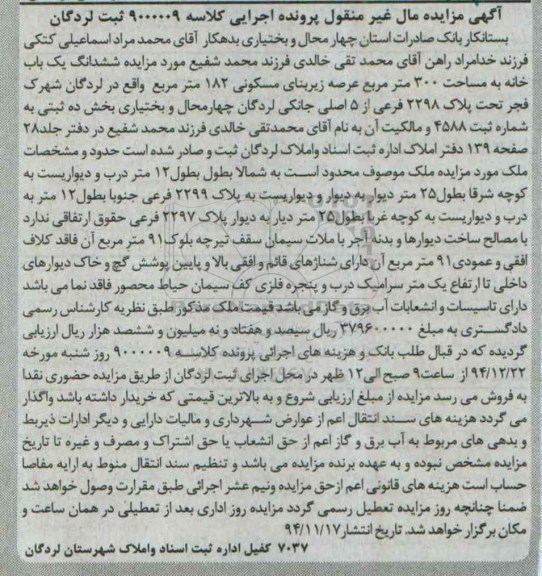 آگهی مزایده مال غیر منقول پرونده اجرایی کلاسه ۹۰۰۰۰۰۹ ثبت لردگان
بستانکار بانک صادرات استان چهار محال و بختیاری بدهکار آقای محمد مراد اسماعیلی کتکی
فرزند خدامراد راهن آقای محمد تقی خالدی فرزند محمد شفیع مورد مزایده ششدانگ یک باب
خانه به مساحت ۳۰۰ متر مربع عرصه زیربنای مسکونی ۱۸۲ متر مربع واقع در لردگان شهرک
فجر تحت پلاک ۲۲۹۸ فرعی از ۵ اصلی جانکی لردگان چهارمحال و بختیاری بخش ده ثبتی به
شماره ثبت ۴۵۸۸ و مالکیت آن به نام آقای محمدتقی خالدی فرزند محمد شفیع در دفتر جلد۲۸
صفحه ۱۳۹ دفتر املاک اداره ثبت اسناد واملاک لردگان ثبت و صادر شده است حدود و مشخصات
ملک مورد مزایده ملک موصوف محدود است به شمالا بطول بطول۱۲ متر درب و دیواریست به
کوچه شرقا بطول۲۵ متر دیوار به دیوار و دیواریست به پلاک ۲۲۹۹ فرعی جنوبا بطول۱۲ متر به
درب و دیواریست به کوچه غربا بطول۲۵ متر دیار به دیوار پلاک ۲۲۹۷ فرعی حقوق ارتفاقی ندارد
با مصالح ساخت دیوارها و بدنه آجر با ملات سیمان سقف تیرچه بلوک۹۱ متر مربع آن فاقد کلاف
افقی و عمودی۹۱ متر مربع آن دارای شناژهای قائم و افقی بالا و پایین پوشش گچ و خاک دیوارهای
داخلی تا ارتفاع یک متر سرامیک درب و پنجره فلزی کف سیمان حیاط محصور فاقد نما می باشد
دارای تاسیسات و انشعابات آب برق و گاز می باشد قیمت ملک مذکور طبق نظریه کارشناس رسمی
دادگستری به مبلغ ۳۷۹۶۰۰۰۰۰ ریال سیصد و هفتاد و نه میلیون و ششصد هزار ریال ارزیابی
گردیده که در قبال طلب بانک و هزینه های اجرائی پرونده کلاسه ۹۰۰۰۰۰۹ روز شنبه مورخه
۹۴/۱۲/۲۲ از ساعت۹ صبح الی۱۲ ظهر در محل اجرای ثبت لردگان از طریق مزایده حضوری نقدا
به فروش می رسد مزایده از مبلغ ارزیابی شروع و به بالاترین قیمتی که خریدار داشته باشد واگذار
می گردد هزینه های سند انتقال اعم از عوارض شهرداری و مالیات دارایی و دیگر ادارات ذیربط
و بدهی های مربوط به آب برق و گاز اعم از حق انشعاب یا حق اشتراک و مصرف و غیره تا تاریخ
مزایده مشخص نبوده و به عهده برنده مزایده می باشد و تنظیم سند انتقال منوط به ارایه مفاصا
حساب است هزینه های قانونی اعم ازحق مزایده ونیم عشر اجرائی طبق مقرارت وصول خواهد شد
ضمنا چنانچه روز مزایده تعطیل رسمی گردد مزایده روز اداری بعد از تعطیلی در همان ساعت و
مکان برگزار خواهد شد. تاریخ انتشار۹۴/۱۱/۱۷
۷۰۳۷ کفیل اداره ثبت اسناد واملاک شهرستان لردگان